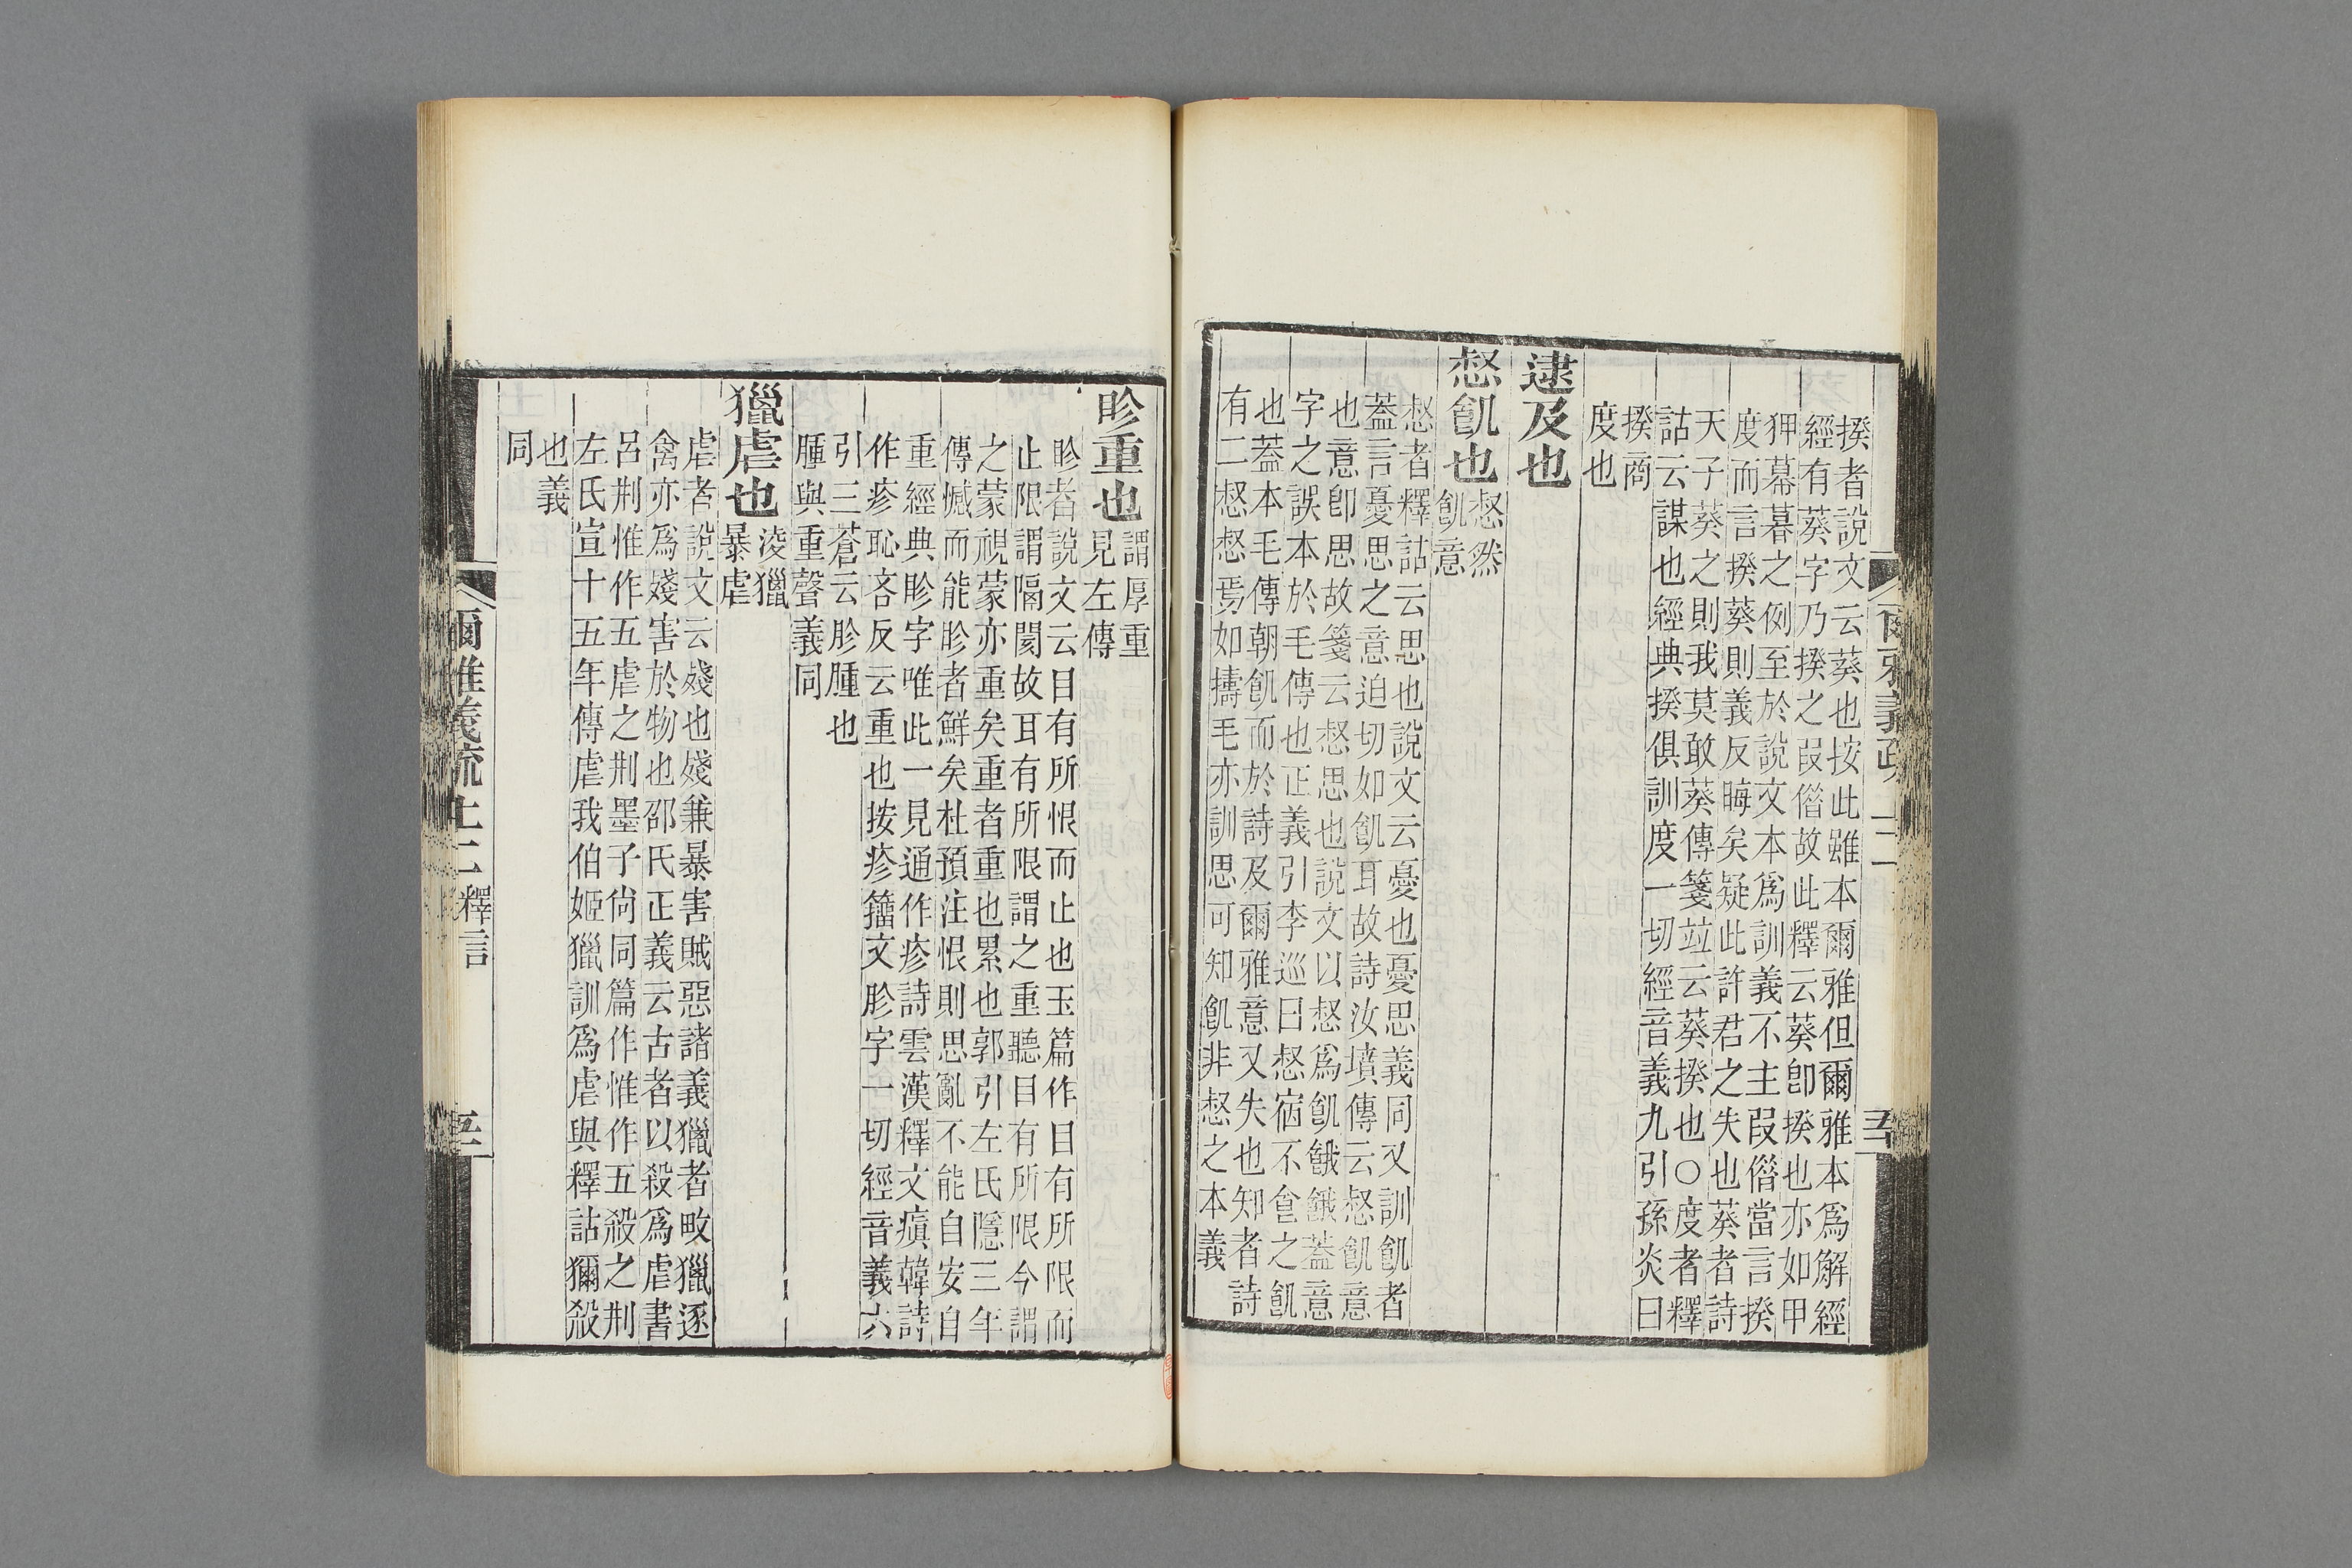 爾雅義疏上二
五十
揆者說文云葵也按此雖本爾雅但爾雅本為解經
經有葵字乃揆之叚借故此釋云葵卽揆也亦如甲
狎幕暮之例至於說文本為訓義不主叚借當言揆
度而言揆葵則義反晦矣疑此許君之失也葵者詩
天子葵之則我莫敢葵傳箋竝云葵揆也○度者釋
詁云謀也經典揆俱訓度一切經音義九引孫炎曰
揆商
度也
逮及也
惄飢也
惄然
飢意
惄者釋詁云思也說文云憂也憂思義同又訓飢者
蓋言憂思之意迫切如飢耳故詩汝墳傳云惄飢意
也意卽思故箋云惄思也說文以惄為飢餓餓蓋意
字之誤本於毛傳也正義引李巡曰惄宿不食之飢
也蓋本毛傳朝飢而於詩及爾雅意又失也知者詩
有二惄惄焉如擣毛亦訓思可知飢非惄之本義
眕重也
謂厚重
見左傳
眕者說文云目有所恨而止也玉篇作目有所限而
止限謂隔閡故耳有所限謂之重聽目有所限今謂
之蒙視蒙亦重矣重者重也累也郭引左氏隱三年
傳憾而能眕者鮮矣杜預注恨則思亂不能自安自
重經典眕字唯此一見通作疹詩雲漢釋文瘨韓詩
作疹恥吝反云重也按疹籀文胗字一切經音義六
引三蒼云胗腫也
腫與重聲義同
獵虐也
淩獵
暴虐
虐者說文云殘也殘兼暴害賊惡諸義獵者畋獵逐
禽亦為殘害於物也邵氏正義云古者以殺為虐書
呂荆惟作五虐之荆墨子尚同篇作惟作五殺之荆
左氏宣十五年傳虐我伯姬獵訓為虐與釋詁獮殺
也義
同
爾雅義疏上二 釋言